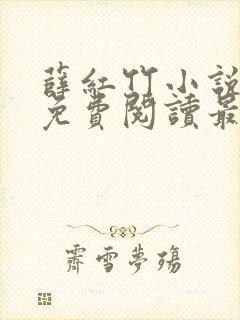 薛紅竹小說
免費閱讀最
霽雪夢殤